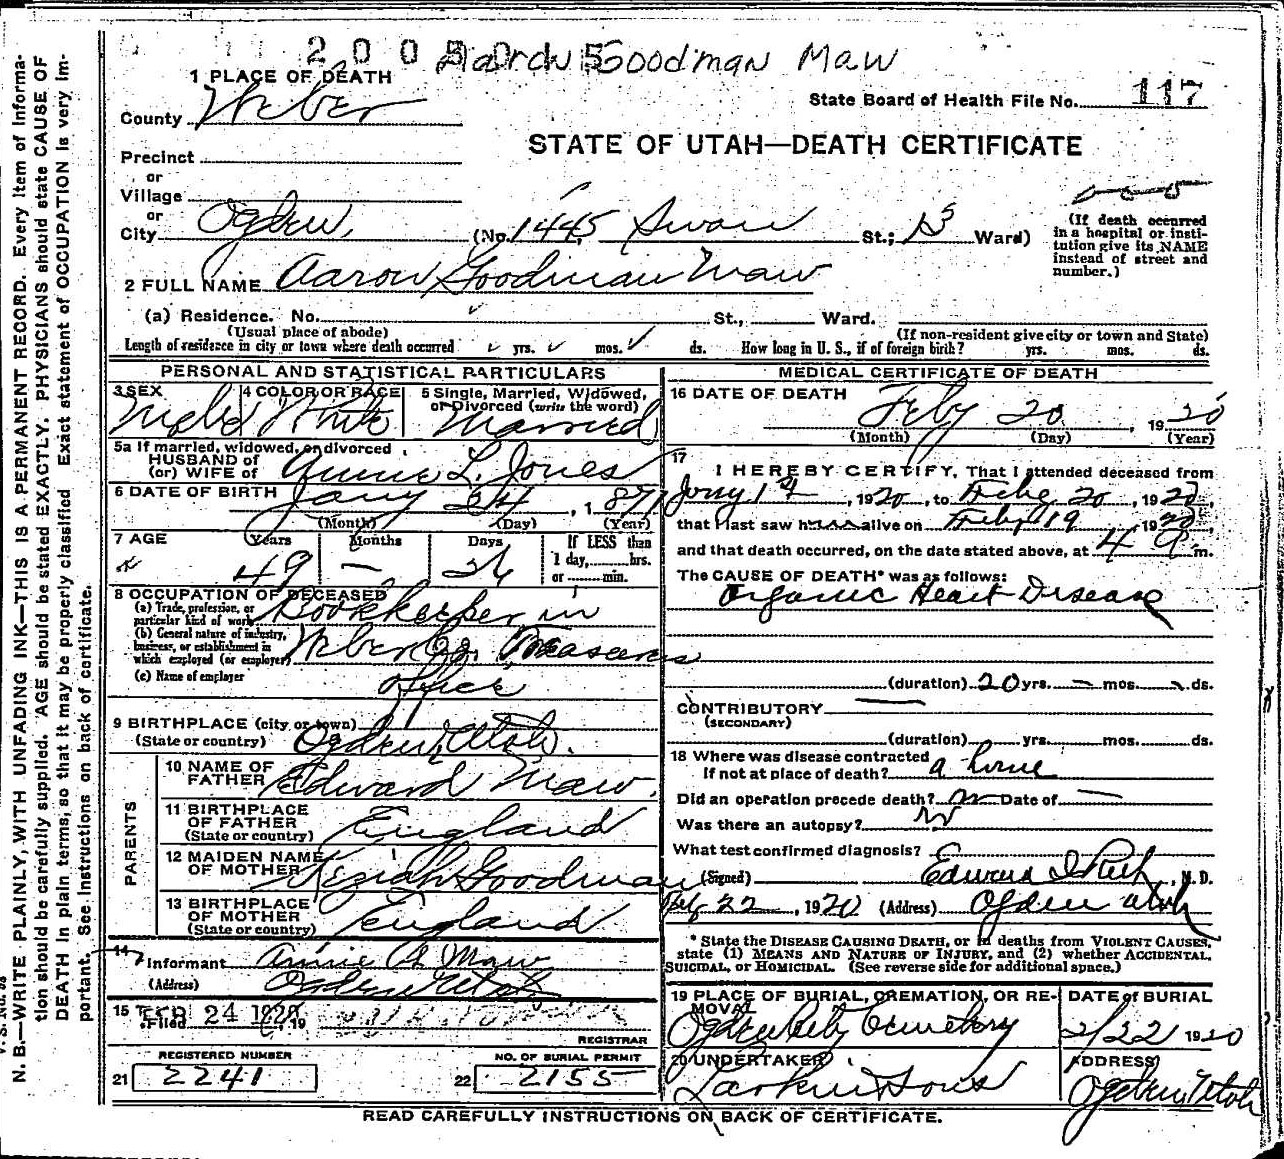 2005015
Aaron Goodman Maw
1 PLACE OF DEATH
County Weber
State Board of Health File No. 117
STATE OF UTAH—DEATH CERTIFICATE
Precinct
or
Village
or
City Ogden (No. 1445 Swan St.; Ward)
(If death occurred in a hospital or institution give its NAME instead of street and number.)
2 FULL NAME Aaron Goodman Maw
(a) Residence. No. St., Ward.
(Usual place of abode) (If non-resident give city or town and State)
Length of residence in city or town where death occurred yrs. mos. ds. How long in U. S., if of foreign birth? yrs. mos. ds.
PERSONAL AND STATISTICAL PARTICULARS
3 SEX Male
4 COLOR OR RACE White
5 Single, Married, Widowed, or Divorced (write the word) Married
5a If married, widowed, or divorced
HUSBAND of
(or) WIFE of Annie L. Jones
6 DATE OF BIRTH Jany 24, 1871
(Month) (Day) (Year)
7 AGE Years Months Days If LESS than
49 — 26 1 day, hrs.
or min.
8 OCCUPATION OF DECEASED
(a) Trade, profession, or particular kind of work Bookkeeper in
(b) General nature of industry, business, or establishment in which employed (or employer) Weber Co. Treasurers
(c) Name of employer office
9 BIRTHPLACE (city or town)
(State or country) Ogden, Utah.
PARENTS
10 NAME OF FATHER Edward Maw.
11 BIRTHPLACE OF FATHER (State or country) England
12 MAIDEN NAME OF MOTHER Keziah Goodman
13 BIRTHPLACE OF MOTHER (State or country) England
14 Informant Annie Maw
(Address) Ogden Utah
15 Filed FEB 24 1920, 19
REGISTRAR
REGISTERED NUMBER
21 2241
NO. OF BURIAL PERMIT
22 2155
MEDICAL CERTIFICATE OF DEATH
16 DATE OF DEATH Feby 20, 1920
(Month) (Day) (Year)
17 I HEREBY CERTIFY, That I attended deceased from
Jany 1st, 1920, to Feby 20, 1920,
that I last saw him alive on Feby 19 1920,
and that death occurred, on the date stated above, at 4 m.
The CAUSE OF DEATH* was as follows:
Organic Heart Disease
(duration) 20 yrs. — mos. ds.
CONTRIBUTORY —
(SECONDARY)
(duration) yrs. mos. ds.
18 Where was disease contracted
If not at place of death? at home
Did an operation precede death? no Date of —
Was there an autopsy? no
What test confirmed diagnosis?
(Signed) Edward I. Rich, M. D.
Feb 22, 1920 (Address) Ogden Utah
* State the DISEASE CAUSING DEATH, or in deaths from VIOLENT CAUSES, state (1) MEANS AND NATURE OF INJURY, and (2) whether ACCIDENTAL, SUICIDAL, or HOMICIDAL. (See reverse side for additional space.)
19 PLACE OF BURIAL, CREMATION, OR REMOVAL
Ogden City Cemetery
DATE of BURIAL
2/22 1920
20 UNDERTAKER
Larkin & Sons
ADDRESS
Ogden, Utah
READ CAREFULLY INSTRUCTIONS ON BACK OF CERTIFICATE.
N. B.—WRITE PLAINLY, WITH UNFADING INK—THIS IS A PERMANENT RECORD. Every Item of Information should be carefully supplied. AGE should be stated EXACTLY. PHYSICIANS should state CAUSE OF DEATH in plain terms, so that it may be properly classified. Exact statement of OCCUPATION is very important. See instructions on back of certificate.